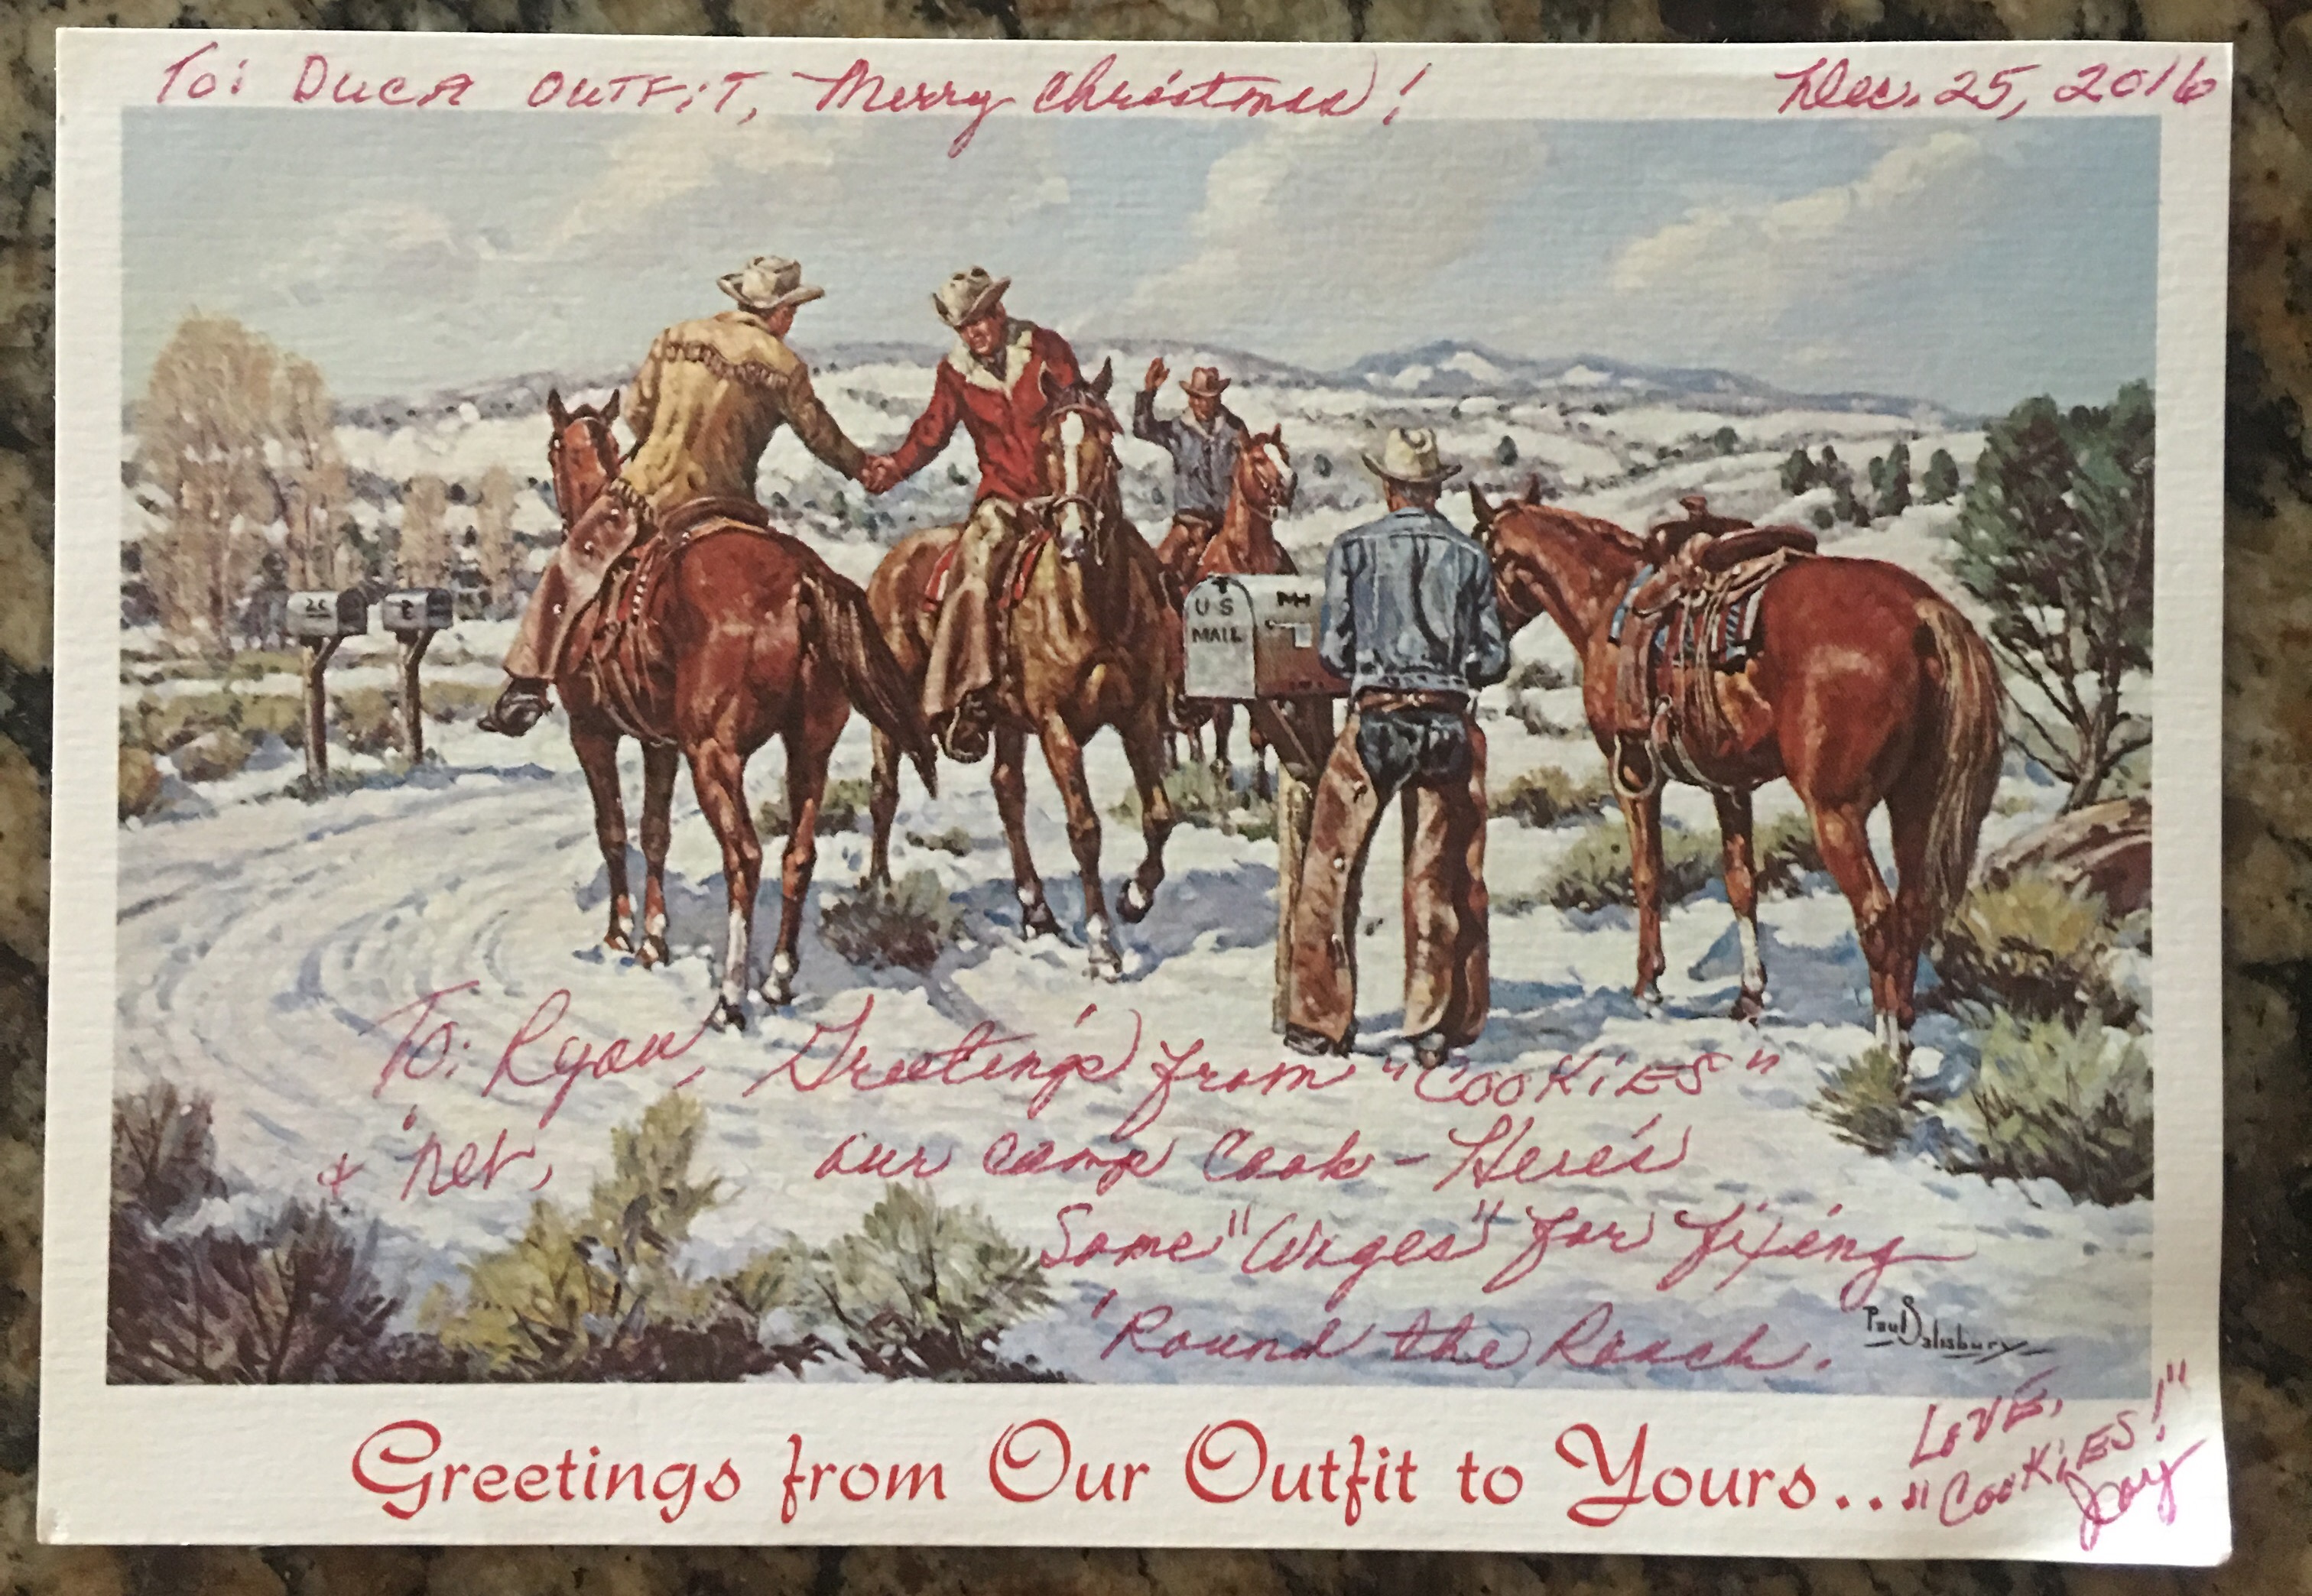 To: DUCA OUTFIT, Merry Christmas!
Dec. 25, 2016
2C
U S
MAIL
To: Ryan, Greetings from "COOKIES"
& 'Net, our camp Cook - Here's
Some "Wages" for fixing
'Round the Ranch.
Paul Salisbury
Greetings from Our Outfit to Yours...
LOVE,
"COOKIES!"
Joay